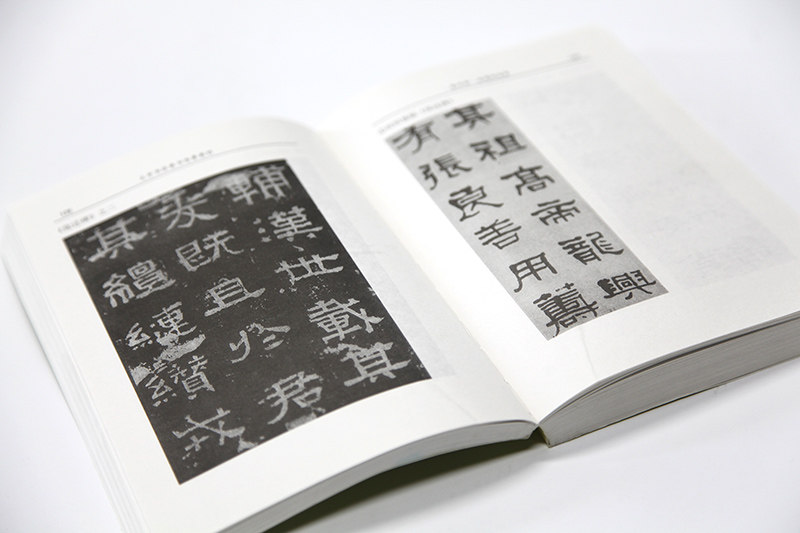 輔漢世載其
爰既且於君
其繵縺纘戒
其祖高帝龍興
有張良善用籌